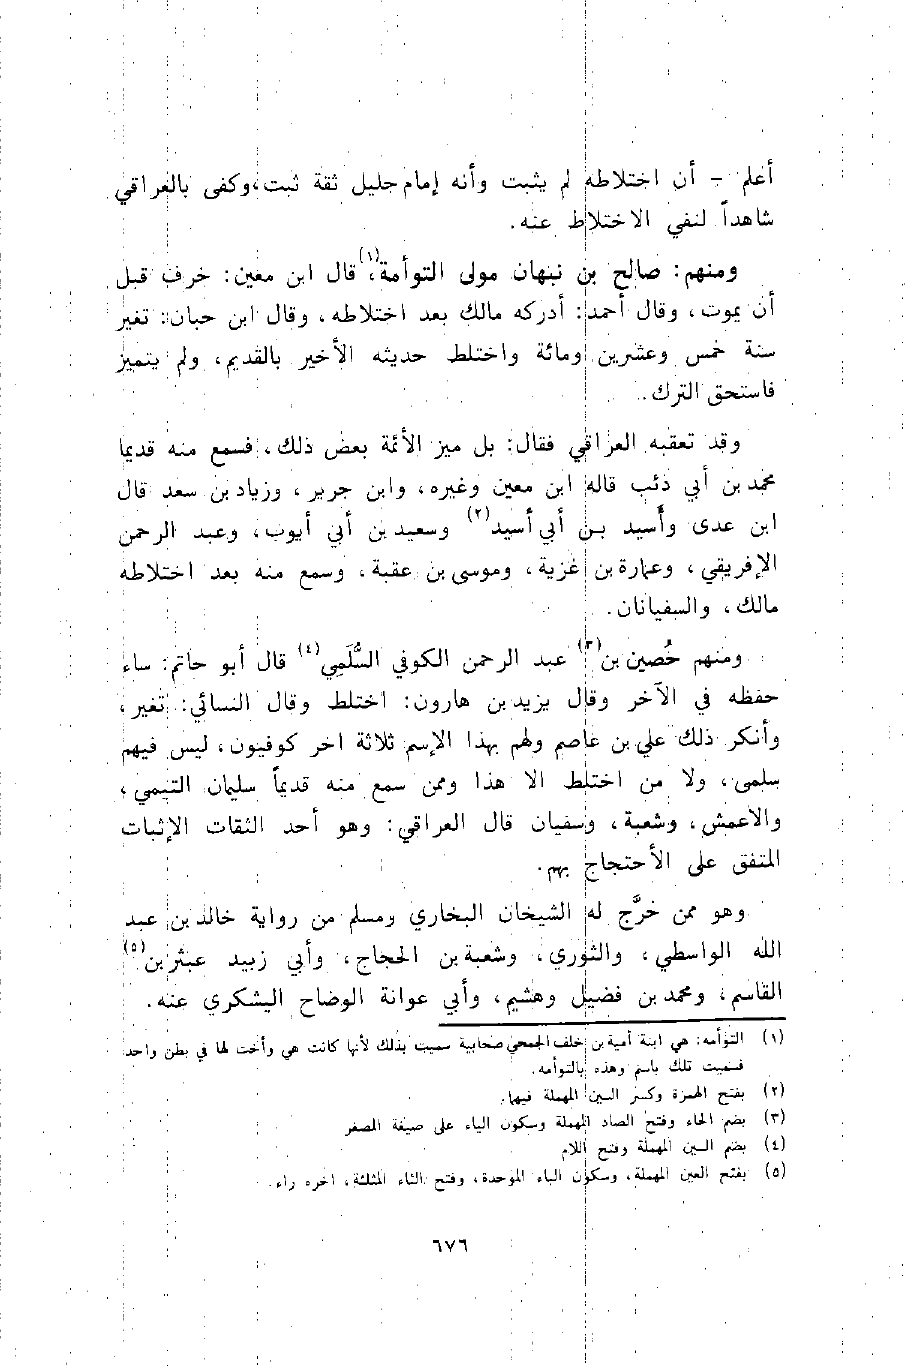 أعلم - أن اختلاطه لم يثبت وأنه إمام جليل ثقة ثبت، وكفى بالعراقي
شاهداً لنفي الاختلاط عنه.
ومنهم: صالح بن نبهان مولى التوأمة(١)، قال ابن معين: خرف قبل
أن يموت، وقال أحمد: أدركه مالك بعد اختلاطه، وقال ابن حبان: تغير
سنة خمس وعشرين ومائة واختلط حديثه الأخير بالقديم، ولم يتميز
فاستحق الترك.
وقد تعقبه العراقي فقال: بل ميز الأئمة بعض ذلك، فسمع منه قديما
محمد بن أبي ذئب قاله ابن معين وغيره، وابن جرير، وزياد بن سعد قال
ابن عدى وأسيد بن أبي أسيد(٢) وسعيد بن أبي أيوب، وعبد الرحمن
الإفريقي، وعمارة بن غزية، وموسى بن عقبة، وسمع منه بعد اختلاطه
مالك، والسفيانان.
ومنهم حُصين بن(٣) عبد الرحمن الكوفي السُّلَمِي(٤) قال أبو حاتم: ساء
حفظه في الآخر وقال يزيد بن هارون: اختلط وقال النسائي: تغير،
وأنكر ذلك علي بن عاصم ولهم بهذا الإسم ثلاثة اخر كوفيون، ليس فيهم
سلمى، ولا من اختلط الا هذا وممن سمع منه قديماً سليمان التيمي،
والاعمش، وشعبة، وسفيان قال العراقي: وهو أحد الثقات الإثبات
المتفق على الأحتجاج بهم.
وهو ممن خرَّج له الشيخان البخاري ومسلم من رواية خالد بن عبد
الله الواسطي، والثوري، وشعبة بن الحجاج، وأبي زبيد عبثر بن(٥)
القاسم، ومحمد بن فضيل وهشيم، وأبي عوانة الوضاح اليشكري عنه.
(١) التوأمه: هي ابنة أمية بن خلف الجمحي صحابية سميت بذلك لأنها كانت هي وأخت لها في بطن واحد
فسميت تلك باسم وهذه بالتوأمه.
(٢) بفتح الهمزة وكسر السين المهملة فيها.
(٣) بضم الحاء وفتح الصاد المهملة وسكون الياء على صيغة المصغر
(٤) بضم السين المهملة وفتح اللام
(٥) بفتح العين المهملة، وسكون الباء الموحدة، وفتح الثاء المثلثة، اخره راء.
٦٧٦